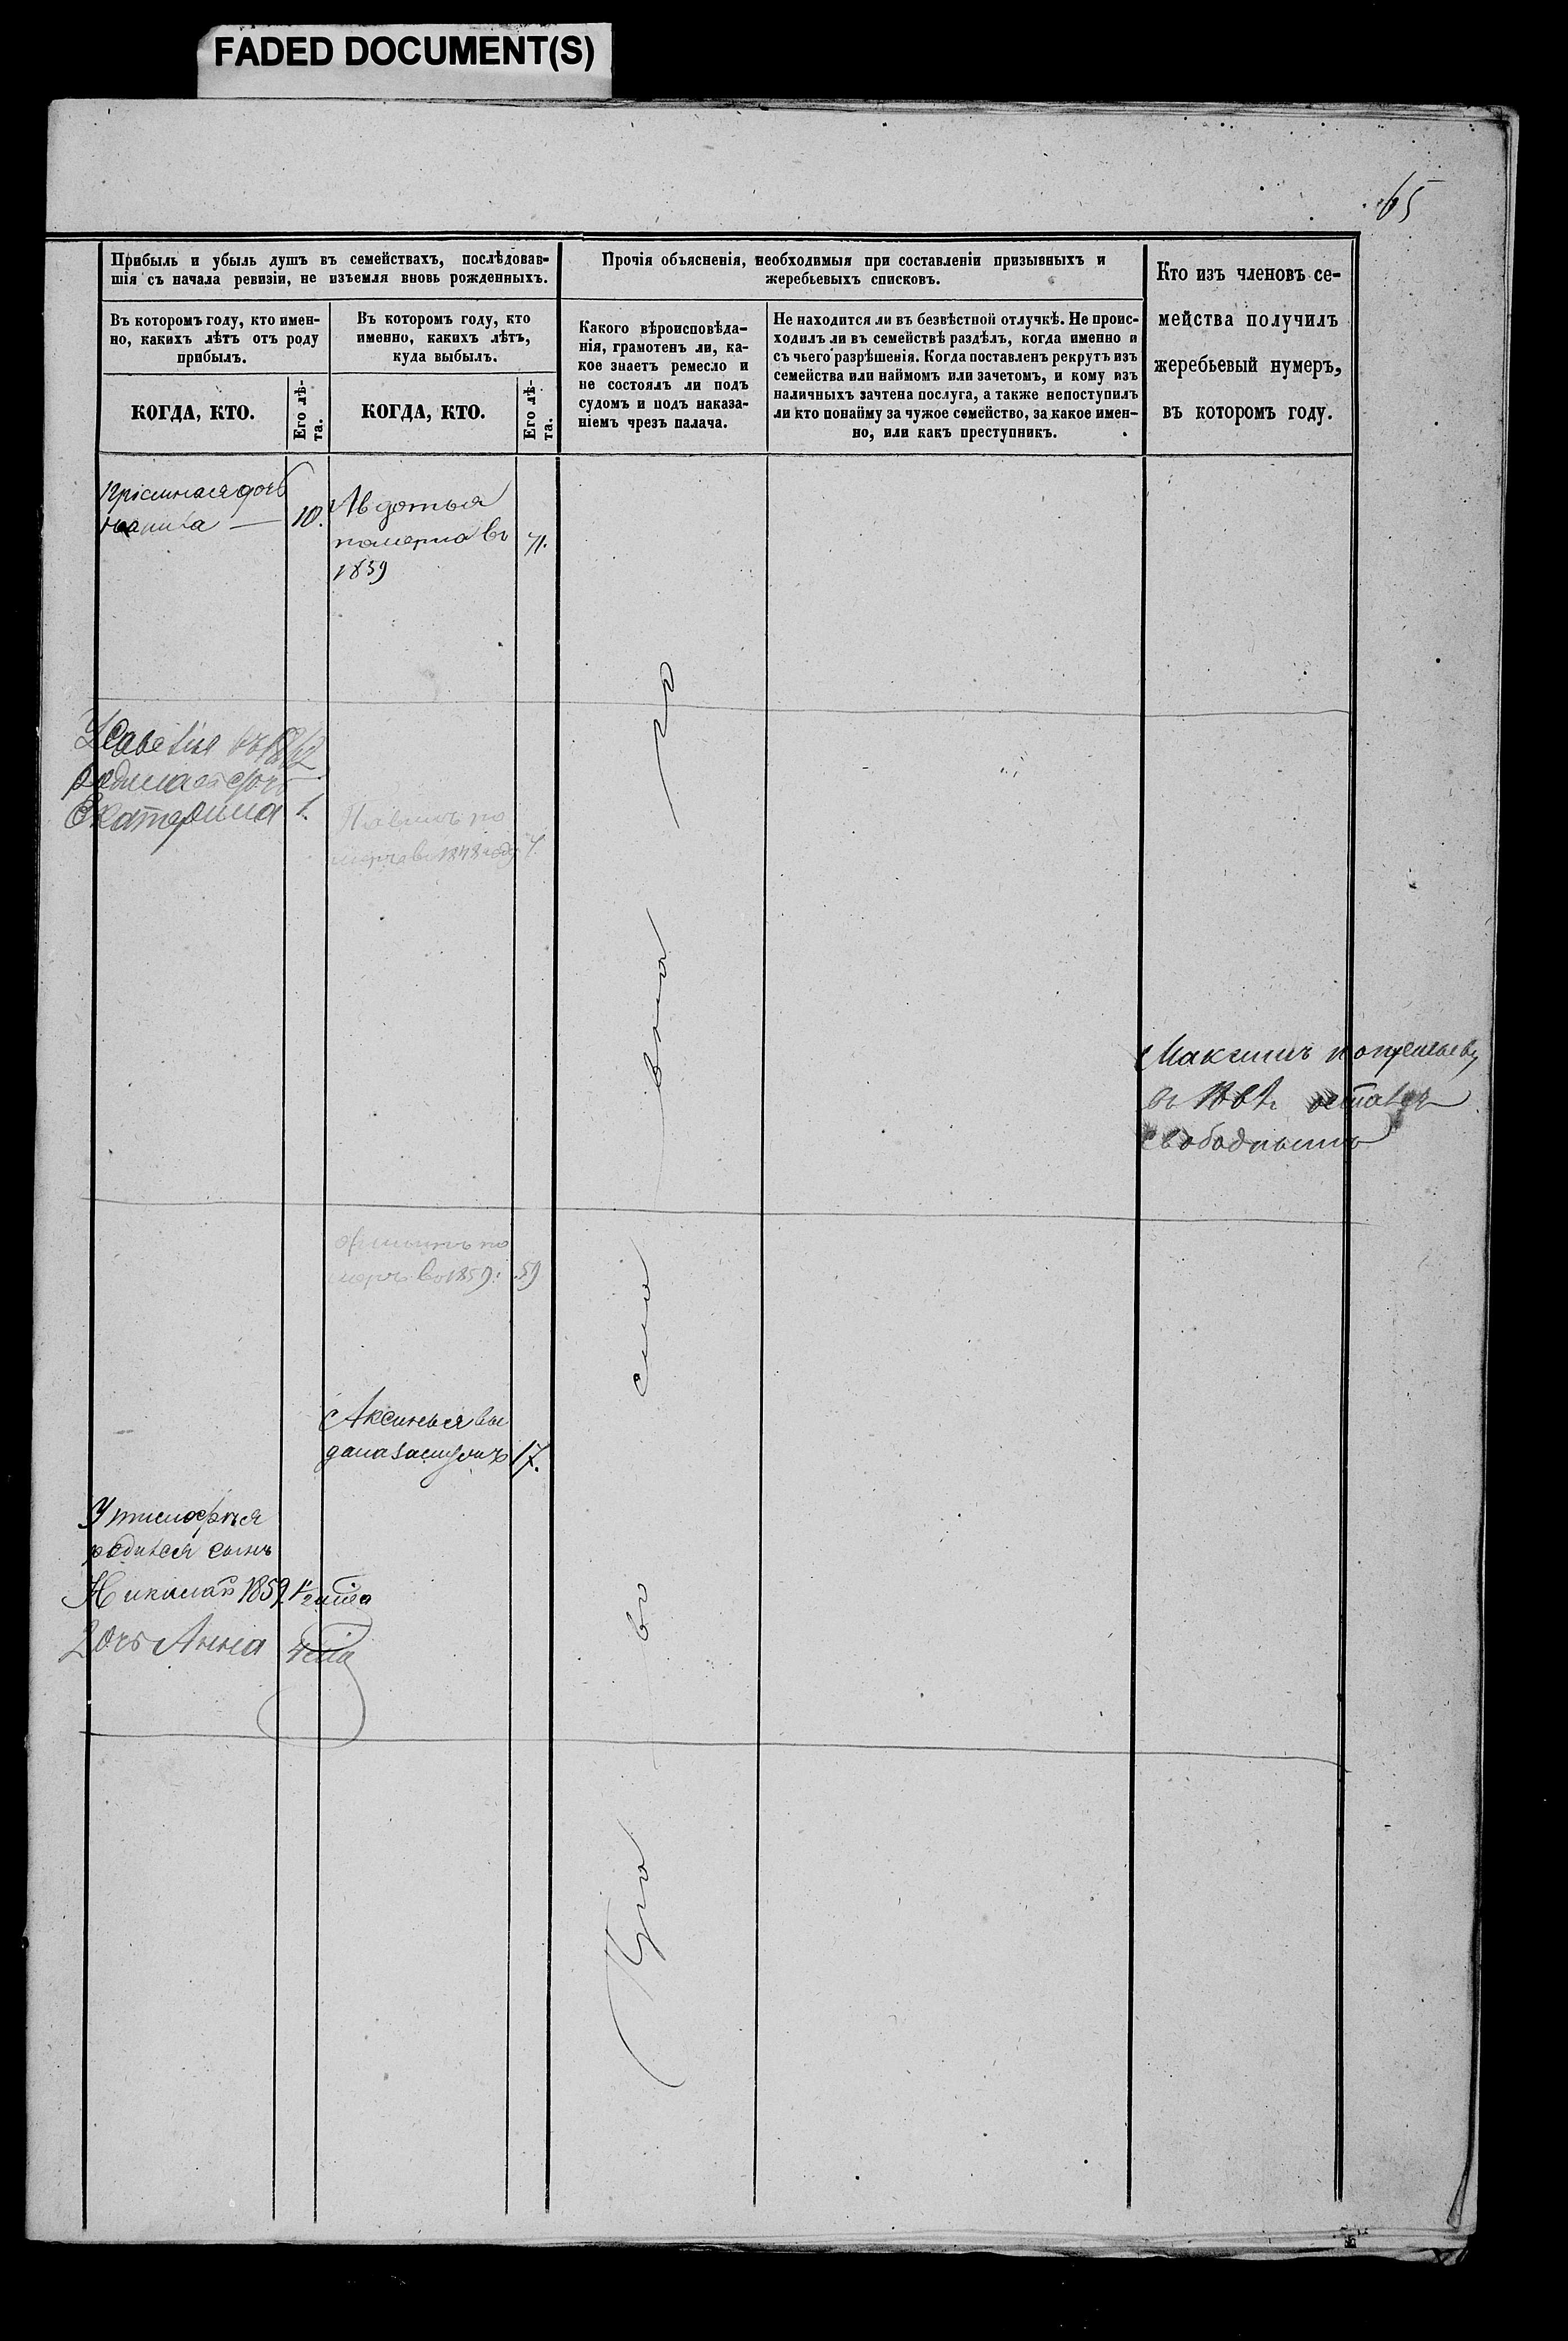 FADED DOCUMENT(S)
65
Прибыль и убыль душъ въ семействахъ, послѣдовав-
шія съ начала ревизіи, не изъемля вновь рожденныхъ.
Въ которомъ году, кто имен-
но, какихъ лѣтъ отъ роду
прибылъ.
Въ которомъ году, кто
именно, какихъ лѣтъ,
куда выбылъ.
КОГДА, КТО.
Его лѣ-
та.
КОГДА, КТО.
Его лѣ-
та.
Прочія объясненія, необходимыя при составленіи призывныхъ и
жеребьевыхъ списковъ.
Какого вѣроисповѣда-
нія, грамотенъ ли, ка-
кое знаетъ ремесло и
не состоялъ ли подъ
судомъ и подъ наказа-
ніемъ чрезъ палача.
Не находится ли въ безвѣстной отлучкѣ. Не проис-
ходилъ ли въ семействѣ раздѣлъ, когда именно и
съ чьего разрѣшенія. Когда поставленъ рекрутъ изъ
семейства или наймомъ или зачетомъ, и кому изъ
наличныхъ зачтена послуга, а также непоступилъ
ли кто понайму за чужое семейство, за какое имен-
но, или какъ преступникъ.
Кто изъ членовъ се-
мейства получилъ
жеребьевый нумеръ,
въ которомъ году.
дочь
10.
Авдотья
померла въ
1859
71.
родилась дочь
Екатерина 1.
Павелъ по
меръ въ 1848 году 4.
Максимъ
въ остался
свободнымъ
по
меръ въ 1859: 59
Аксинья вы
дана замужъ 17.
У Тимофѣя
родился сынъ
Николай 1859
Дочь Анна